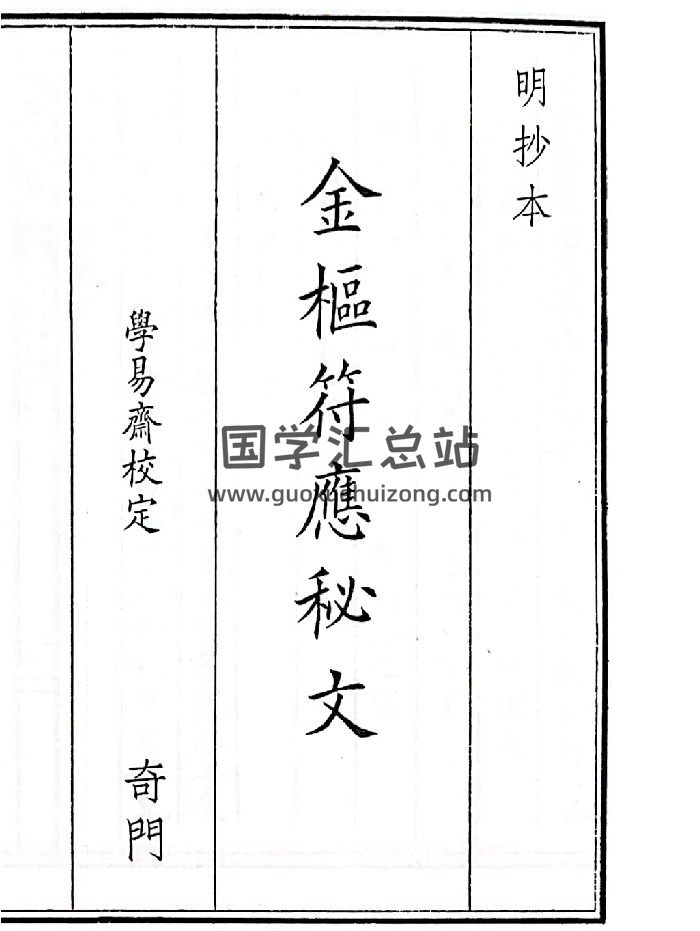 明抄本
金樞符應秘文
學易齋校定
奇門
国学汇总站
www.guoxuehuizong.com